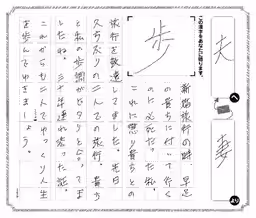 夫
へ
妻
より
この漢字をあなたに贈ります。
歩
新婚旅行の時、早足
の貴方に付いて行く
のに必死だった私。
これに懲り貴方との
旅行を敬遠してました。先日
久方ぶりの二人での旅行。貴方
と私の歩調がピタリと合ってま
したね。三十年連れ添った証。
これからも二人でゆっくり人生
を歩んでゆきましょう。